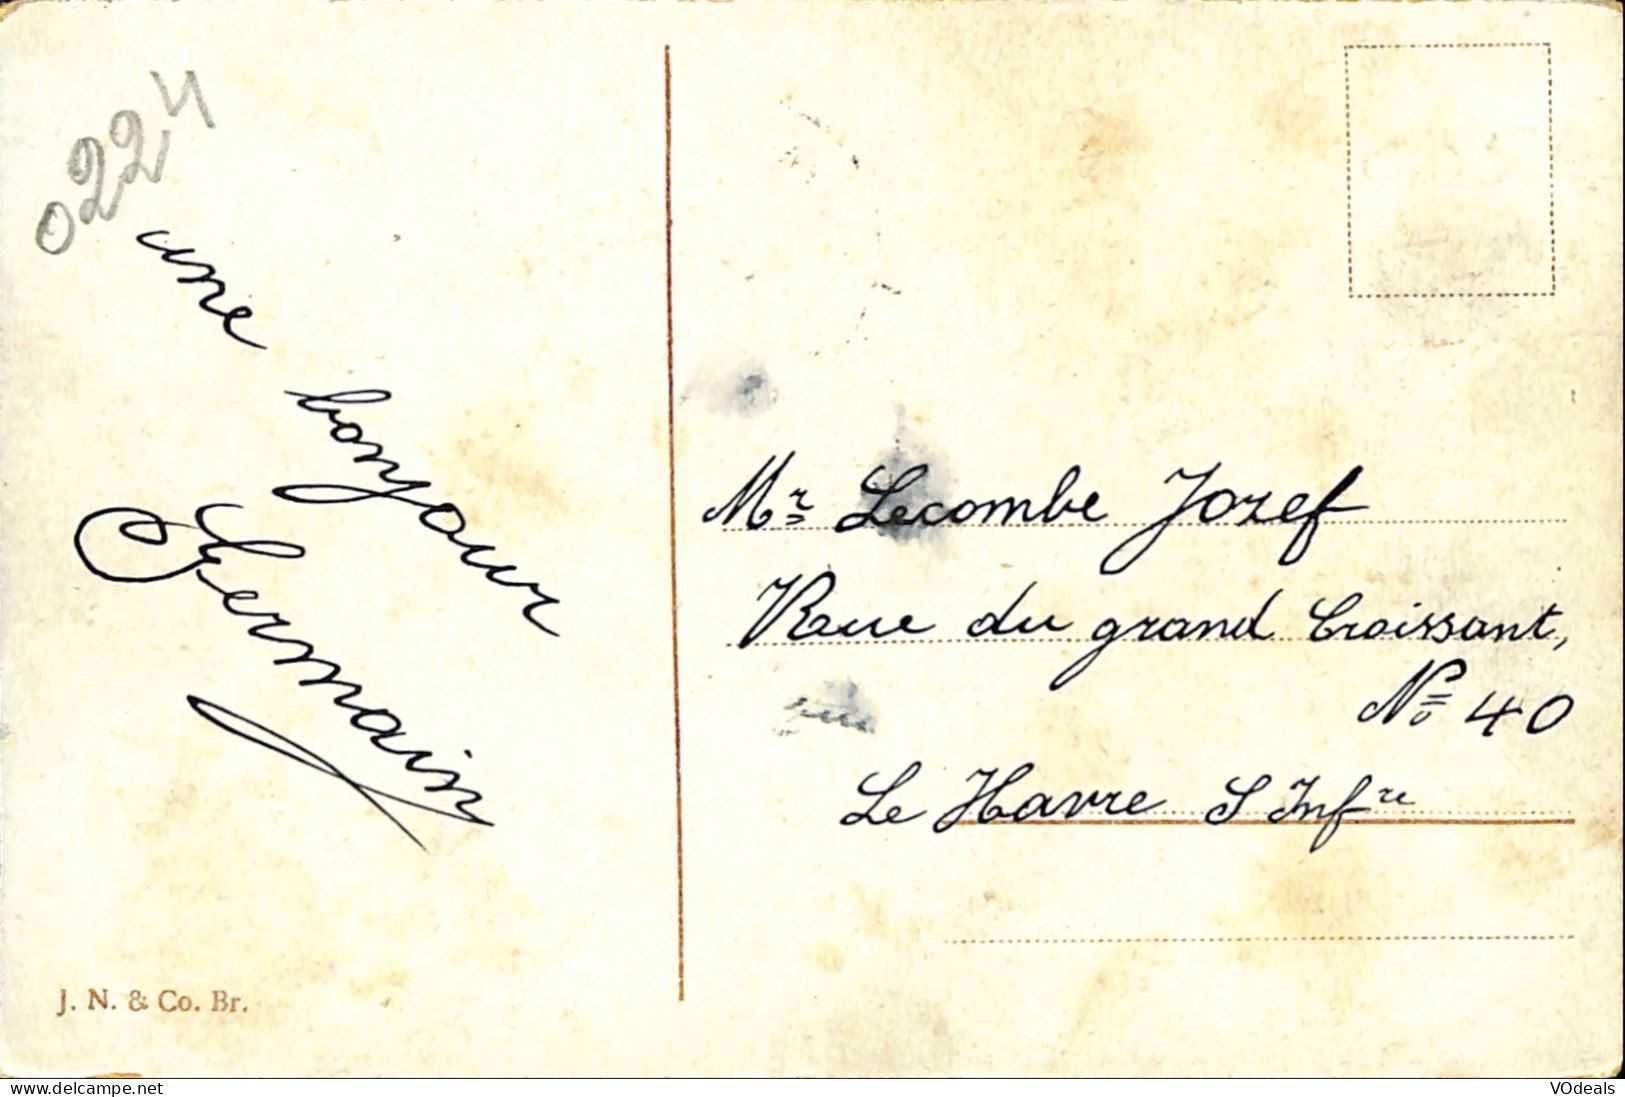 0224
une bonjour
Germain
Mr Lecombe Jozef
Rue du grand Croissant,
No 40
Le Havre S Infre
J. N. & Co. Br.
www.delcampe.net
VOdeals